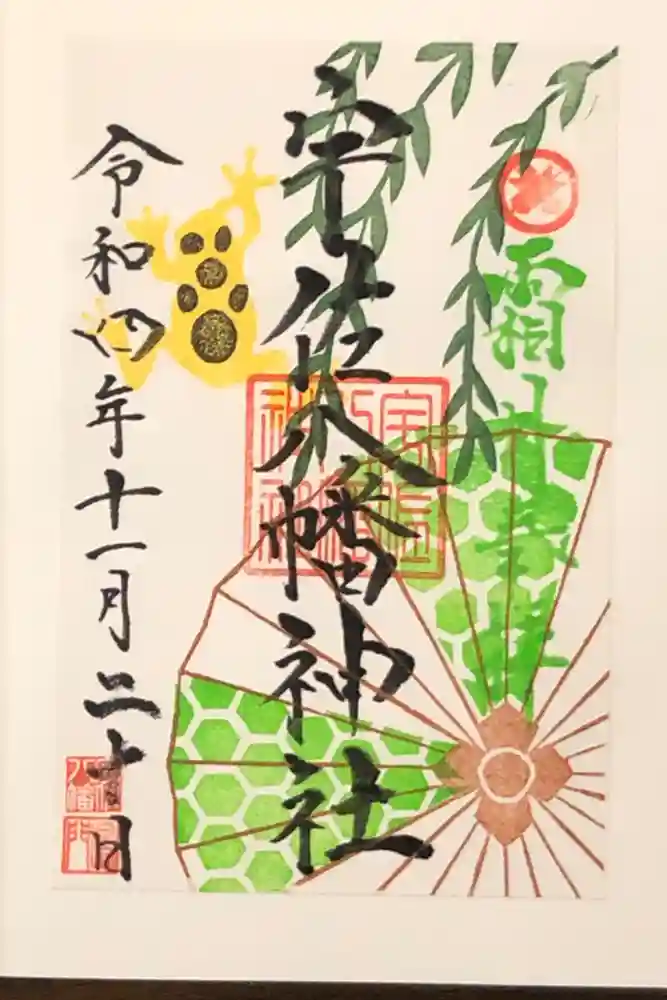 霜月
宇佐八幡神社
令和四年十一月二十日